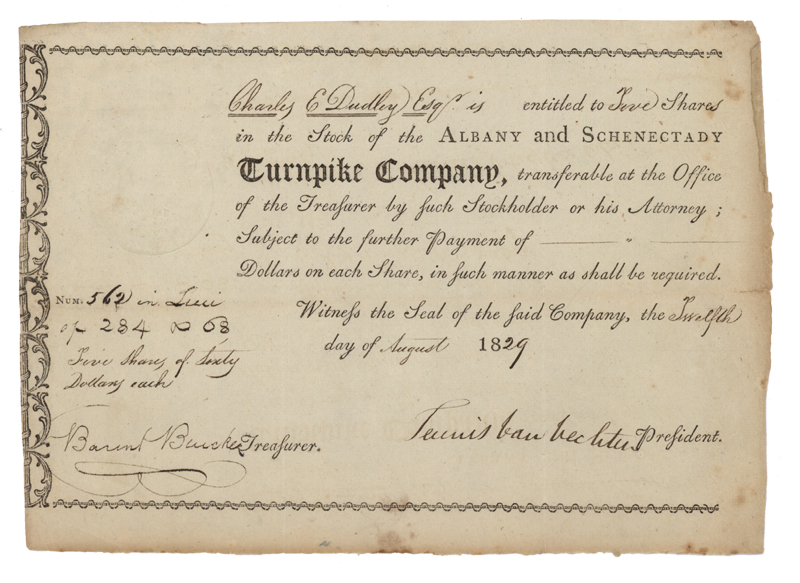 Charles E Dudley Esqr. is entitled to Five Shares
in the Stock of the ALBANY and SCHENECTADY
Turnpike Company, transferable at the Office
of the Treasurer by ſuch Stockholder or his Attorney;
Subject to the further Payment of — " —
Dollars on each Share, in ſuch manner as shall be required.
Witneſs the Seal of the ſaid Company, the Twelfth
day of August 1829
NUM. 562 in Lieu
of 284 & 68
Five Shares of Sixty
Dollars each
Barent Bleecker Treasurer.
Teunis Van Vechten President.